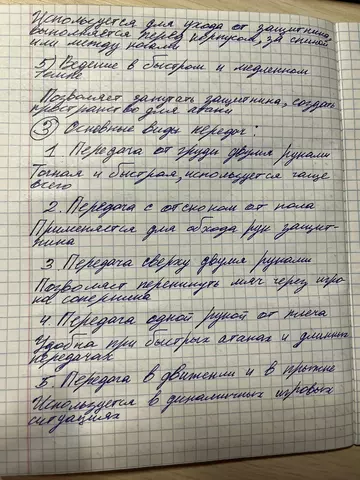 Используется для ухода от защитника,
выполняется перед корпусом, за спиной
или между ногами
5) Ведение в быстром и медленном
темпе
Позволяет запутать защитника, создать
пространство для атаки
③ Основные виды передач:
1. Передача от груди двумя руками
Точная и быстрая, используется чаще
всего
2. Передача с отскоком от пола
Применяется для обхода рук защит-
ника
3. Передача сверху двумя руками
Позволяет перекинуть мяч через игро-
ка соперника
4. Передача одной рукой от плеча
Удобна при быстрых атаках и длинных
передачах
5. Передача в движении и в прыжке
Используется в динамичных игровых
ситуациях